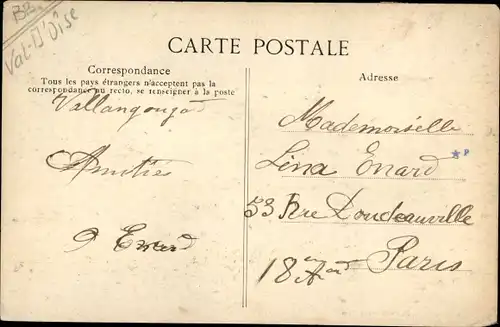 BB
Val-D'Oise
CARTE POSTALE
Correspondance
Tous les pays étrangers n'acceptent pas la
correspondance au recto, se renseigner à la poste
Adresse
Vallangoujard
Amitiés
Enard
Mademoiselle
Lina Enard
53 Rue Doudeauville
Paris
18e Ard